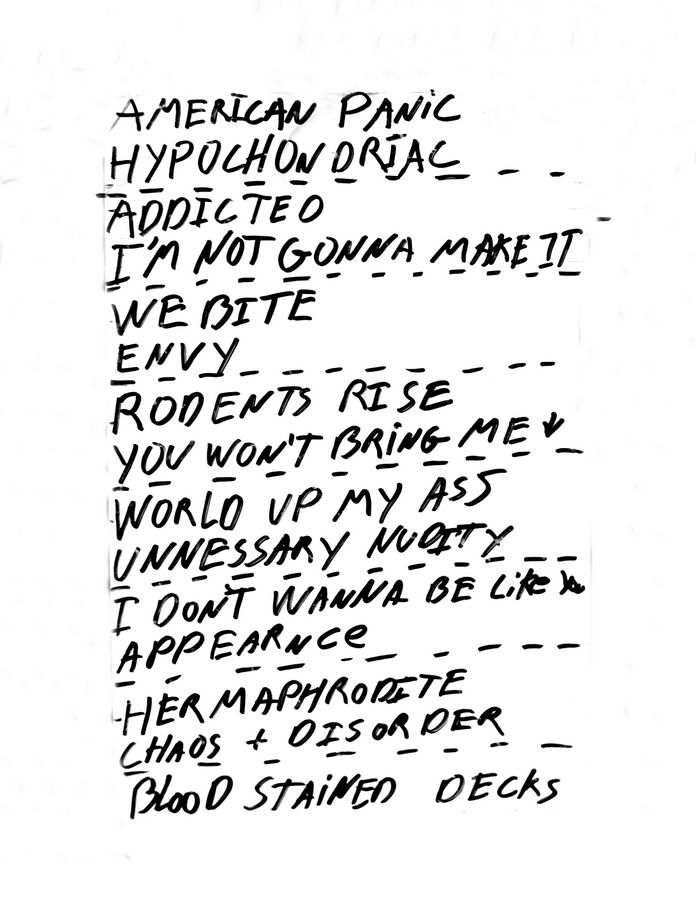 AMERICAN PANiC
HYPOCHONDRIAC
ADDICTED
I'M NOT GONNA MAKE IT
WE BITE
ENVY
RODENTS RISE
YOU WON'T BRiNG ME ↓
WORLD UP MY ASS
UNNESSARY NUDITY
I DON'T WANNA BE LiKe
APPEARNce
HERMAPHRODITE
CHAOS + DISORDER
BlooD STAiNED DECKS